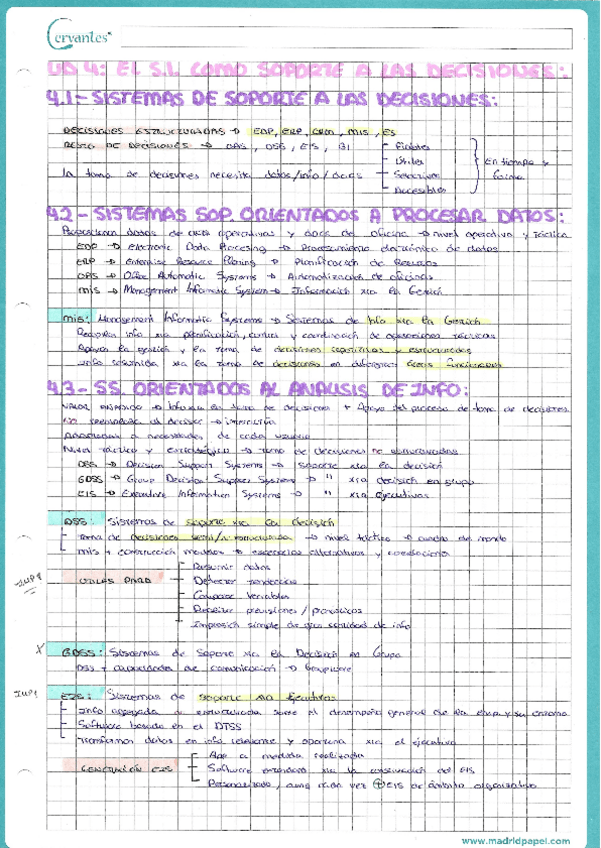 Cervantes
UD 4: EL S.I. COMO SOPORTE A LAS DECISIONES:
4.1- SISTEMAS DE SOPORTE A LAS DECISIONES:
DECISIONES ESTRUCTURADAS → EDP, ERP, CRM, MIS, ES
RESTO DE DECISIONES → OAS, DSS, EIS, BI
Fiables
Útiles
La toma de decisiones necesita datos/info/
Accesibles
En tiempo y forma
4.2- SISTEMAS SOP. ORIENTADOS A PROCESAR DATOS:
Proporcionan datos de operativas y de oficina → nivel operativo y táctico
EDP → Electronic Data Processing → Procesamiento electrónico de datos
ERP → Enterprise Resource Planing → Planificación de Recursos
OAS → Office Automatic Systems → Automatización de oficinas
MIS → Management Informatic System → Información xra la Gestión
MIS: Management Informatic Systems → Sistemas de Info xra la Gestión
info xra planificación, control y coordinación de operaciones tácticas
Apoyan la gestión y la toma de decisiones repetitivas y estructuradas
Info resumida xra la toma de decisiones en diferentes áreas funcionales
4.3- SS. ORIENTADOS AL ANALISIS DE INFO:
VALOR AÑADIDO → Info xra la toma de decisiones + Apoyo del proceso de toma de decisiones
al decisor → interacción
a necesidades de cada usuario
Nivel táctico y estratégico → toma de decisiones no estructuradas
DSS → Decision Support Systems → soporte xra la decisión
GDSS → Group Decision Support Systems → " xra decisión en grupo
EIS → Executive Information Systems → " xra ejecutivos
DSS: Sistemas de soporte xra la decisión
Toma de decisiones semi/no estructuradas → nivel táctico → mando
MIS + construcción modelos → alternativas y
IMP!
UTILES PARA
Resumir datos
Detectar tendencias
Comparar variables
Realizar previsiones / pronósticos
Impresión simple de gran cantidad de info
X
GDSS: Sistemas de Soporte xra la Decisión en Grupo
DSS + capacidades de comunicación → Groupware
IMP!
EIS: Sistemas de soporte xra Ejecutivos
Info agregada y estructurada sobre el desempeño general de la emp y su entorno
Software basado en el
Transforman datos en info relevante y oportuna xra el ejecutivo
EIS
App a medida realizada
Software estándar xra la construcción del EIS
Personalizado, cada vez EIS de ámbito organizativo
www.madridpapel.com